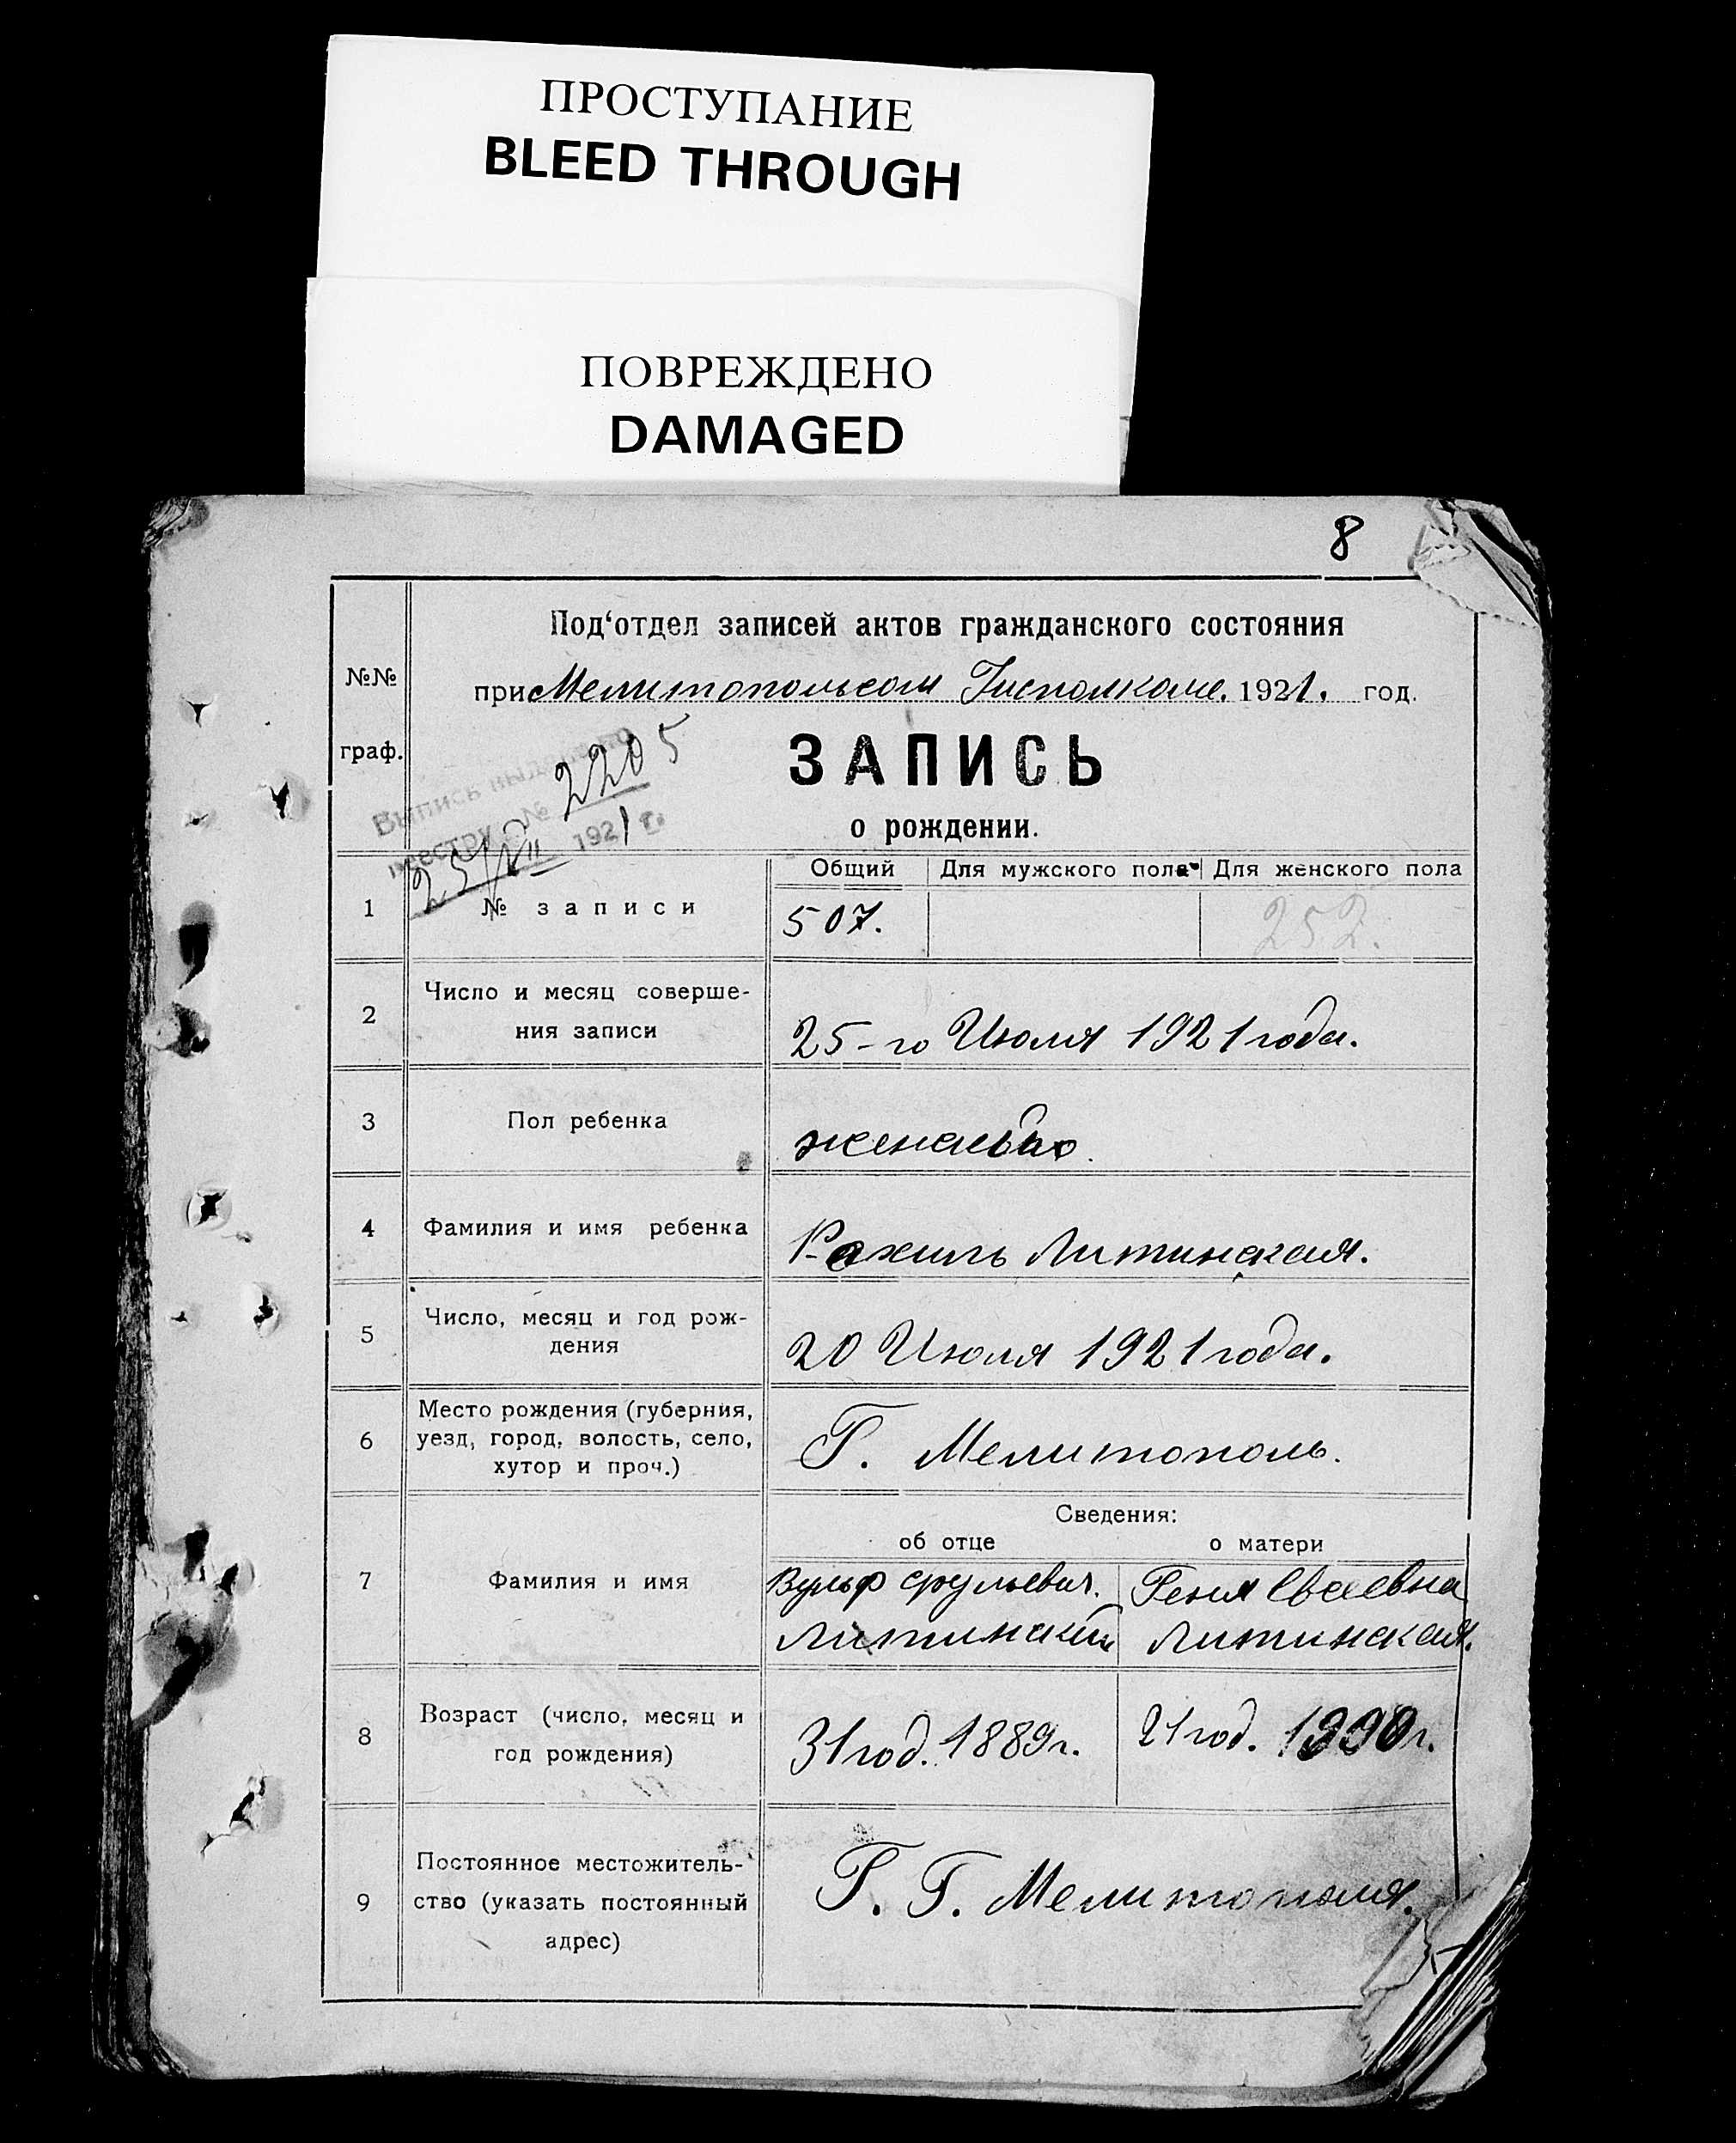 ПРОСТУПАНИЕ
BLEED THROUGH
ПОВРЕЖДЕНО
DAMAGED
8
№№
граф.
Под‘отдел записей актов гражданского состояния
при Мелитопольском Исполкоме. 1921. год.
ЗАПИСЬ
о рождении.
Выпись выдана по
реестру № 2205
25/VII 1921 г.
Общий Для мужского пола Для женского пола
1 № записи 507. 252.
2 Число и месяц соверше-
ния записи
25-го Июля 1921 года.
3 Пол ребенка
4 Фамилия и имя ребенка Рахиль Литинская.
5 Число, месяц и год рож-
дения
20 Июля 1921 года.
6 Место рождения (губерния,
уезд, город, волость, село,
хутор и проч.)
Г. Мелитополь.
Сведения:
об отце о матери
7 Фамилия и имя
Вульф Срульевич. Геня
Литинский Литинская.
8 Возраст (число, месяц и
год рождения)
31 год. 1889 г. 21 год.
9 Постоянное местожитель-
ство (указать постоянный
адрес)
Г. Г. Мелитополя.